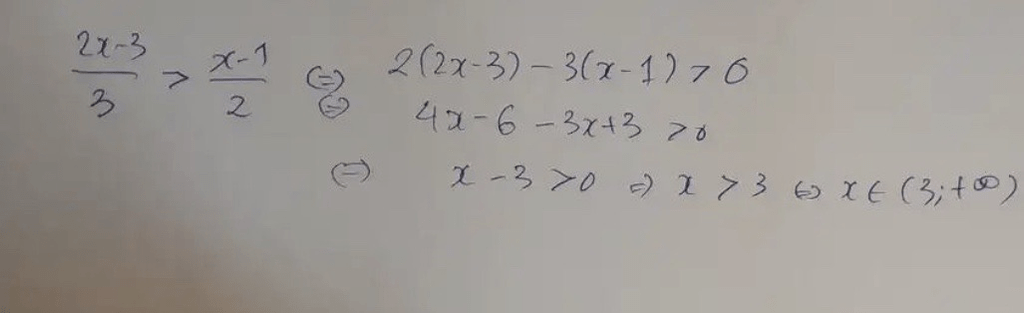 (2x-3)/3 > (x-1)/2 ⇔ 2(2x-3) - 3(x-1) > 0
⇔ 4x - 6 - 3x + 3 > 0
⇔ x - 3 > 0 ⇒ x > 3 ⇔ x ∈ (3; +∞)